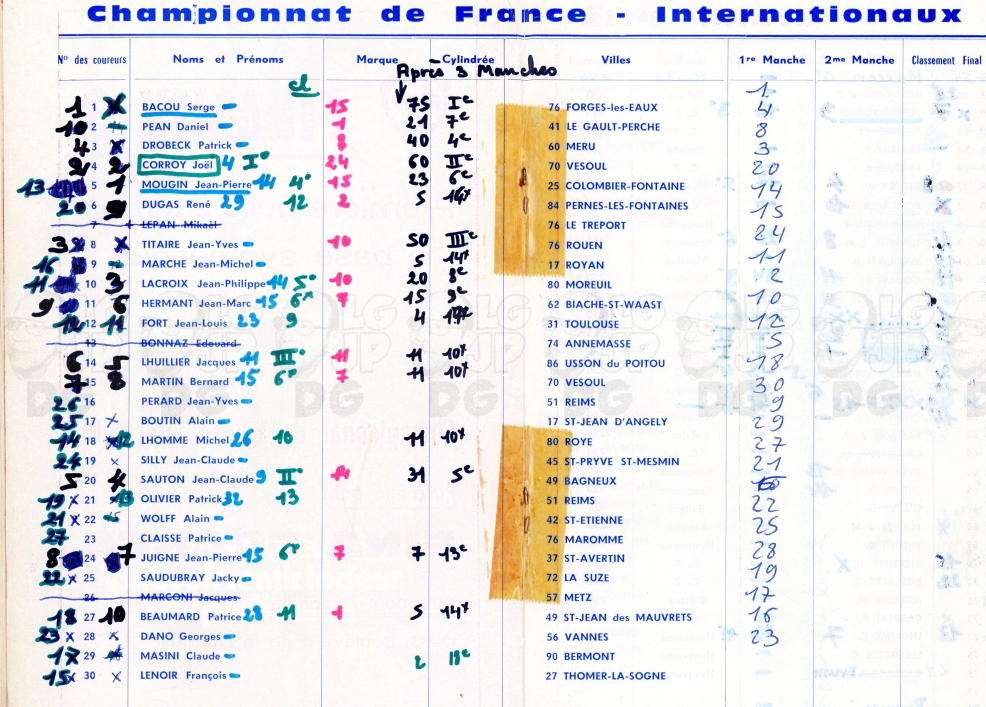 Championnat de France - Internationaux
N° des coureurs Noms et Prénoms Marque Cylindrée Villes 1re Manche 2me Manche Classement Final
Après 3 Manches
cl 1
1 1 BACOU Serge 15 75 Ie 76 FORGES-les-EAUX 4
10 2 PEAN Daniel 1 21 7e 41 LE GAULT-PERCHE 8
4 3 DROBECK Patrick 8 40 4e 60 MERU 3
2 4 2 CORROY Joël 4 I° 24 60 IIe 70 VESOUL 20
13 5 1 MOUGIN Jean-Pierre 14 4° 15 23 6e 25 COLOMBIER-FONTAINE 14
20 6 9 DUGAS René 29 12 2 5 14x 84 PERNES-LES-FONTAINES 15
7 LEPAN Mikaël 76 LE TREPORT 24
3 8 TITAIRE Jean-Yves 10 50 IIIe 76 ROUEN 11
16 9 MARCHE Jean-Michel 5 14x 17 ROYAN 2
11 10 3 LACROIX Jean-Philippe 14 5° 10 20 8e 80 MOREUIL 10
9 11 6 HERMANT Jean-Marc 15 6x 7 15 9e 62 BIACHE-ST-WAAST 12
12 12 11 FORT Jean-Louis 23 9 4 31 TOULOUSE 5
13 BONNAZ Edouard 74 ANNEMASSE 18
6 14 5 LHUILLIER Jacques 11 III° 11 11 10x 86 USSON du POITOU 30
7 15 8 MARTIN Bernard 15 6x 7 11 10x 70 VESOUL 9
26 16 PERARD Jean-Yves 51 REIMS 29
25 17 x BOUTIN Alain 17 ST-JEAN D'ANGELY 27
14 18 12 LHOMME Michel 26 10 11 10x 80 ROYE 21
24 19 x SILLY Jean-Claude 45 ST-PRYVE ST-MESMIN
5 20 4 SAUTON Jean-Claude 9 II° 14 31 5e 49 BAGNEUX 22
19 x 21 13 OLIVIER Patrick 32 13 51 REIMS 25
21 x 22 WOLFF Alain 42 ST-ETIENNE 28
27 23 CLAISSE Patrice 76 MAROMME 19
8 24 7 JUIGNE Jean-Pierre 15 6x 7 7 13e 37 ST-AVERTIN 17
22 x 25 SAUDUBRAY Jacky 72 LA SUZE 16
26 MARCONI Jacques 57 METZ 23
18 27 10 BEAUMARD Patrice 28 11 1 5 14x 49 ST-JEAN des MAUVRETS
23 x 28 x DANO Georges 56 VANNES
17 29 MASINI Claude 2 90 BERMONT
15 x 30 x LENOIR François 27 THOMER-LA-SOGNE